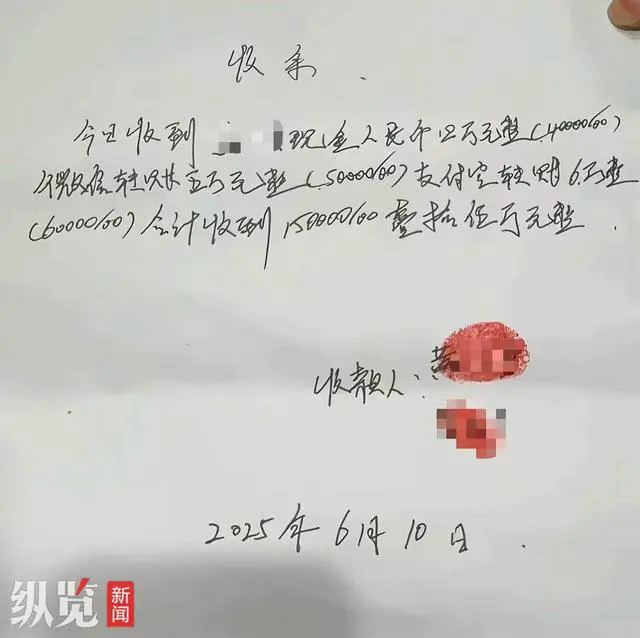 收条.
今日收到 现金人民币四万元整(40000/00)
微信转账五万元整(50000/00)支付宝转账6万整
(60000/00)合计收到150000/00壹拾伍万元整.
收款人: 黄
2025年6月10日.
纵览
新闻